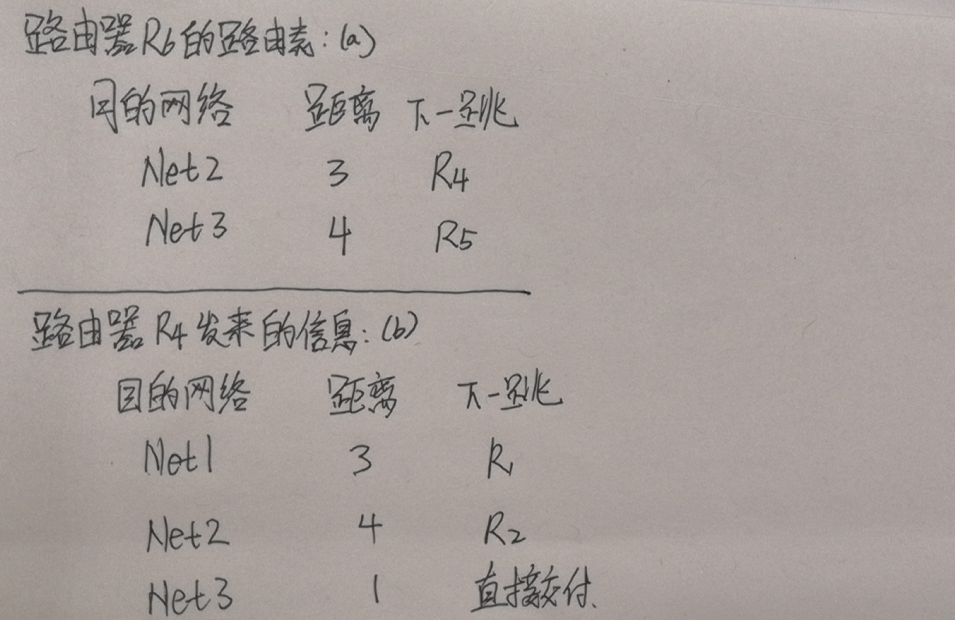 路由器R6的路由表:(a)
目的网络 距离 下一跳
Net2 3 R4
Net3 4 R5
路由器R4发来的信息:(b)
目的网络 距离 下一跳
Net1 3 R1
Net2 4 R2
Net3 1 直接交付.